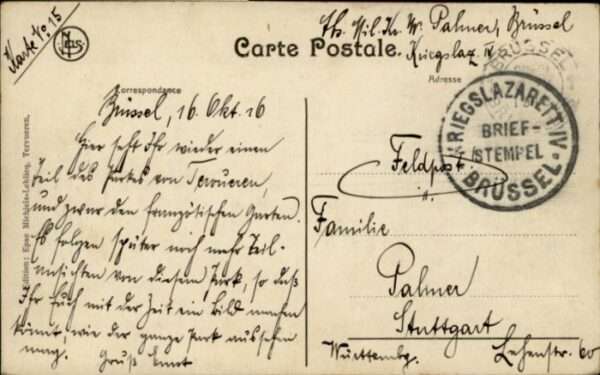 Karte No. 15
Abs. Mil. Kr. W. Palmer, Brüssel
Kriegslaz. IV
Carte Postale.
Correspondance
Adresse
BRÜSSEL
Brüssel, 16. Okt. 16
Hier seht Ihr wieder einen
Teil des Parkes von Tervueren,
und zwar den französischen Garten.
Es folgen später noch mehr Teil-
ansichten von diesem Park, so daß
Ihr Euch mit der Zeit ein Bild machen
könnt, wie der ganze Park aussehen
mag. Gruß Ernst
KRIEGSLAZARETT IV.
BRIEF-
STEMPEL
BRÜSSEL
Feldpost.
Familie
Palmer
Stuttgart
Württembg. Lehenstr. 60
Edition: Epse Michiels-Lehling, Tervueren.